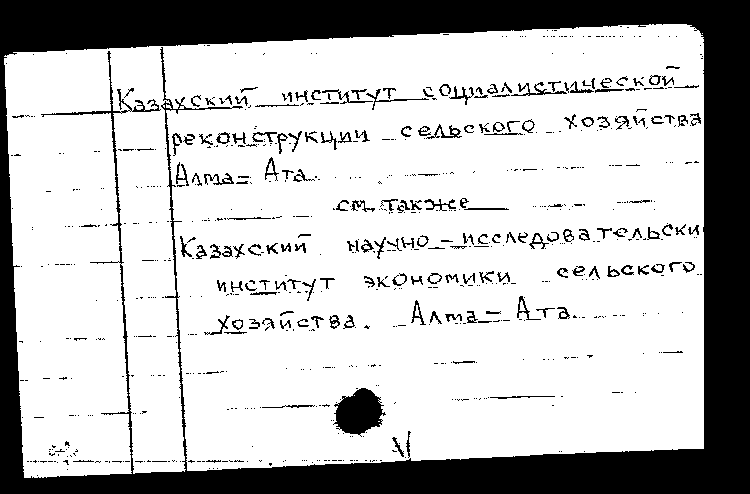 Казахский институт социалистической
реконструкции сельского хозяйства
Алма-Ата.
см. также
Казахский научно-исследовательски
институт экономики сельского
хозяйства. Алма-Ата.